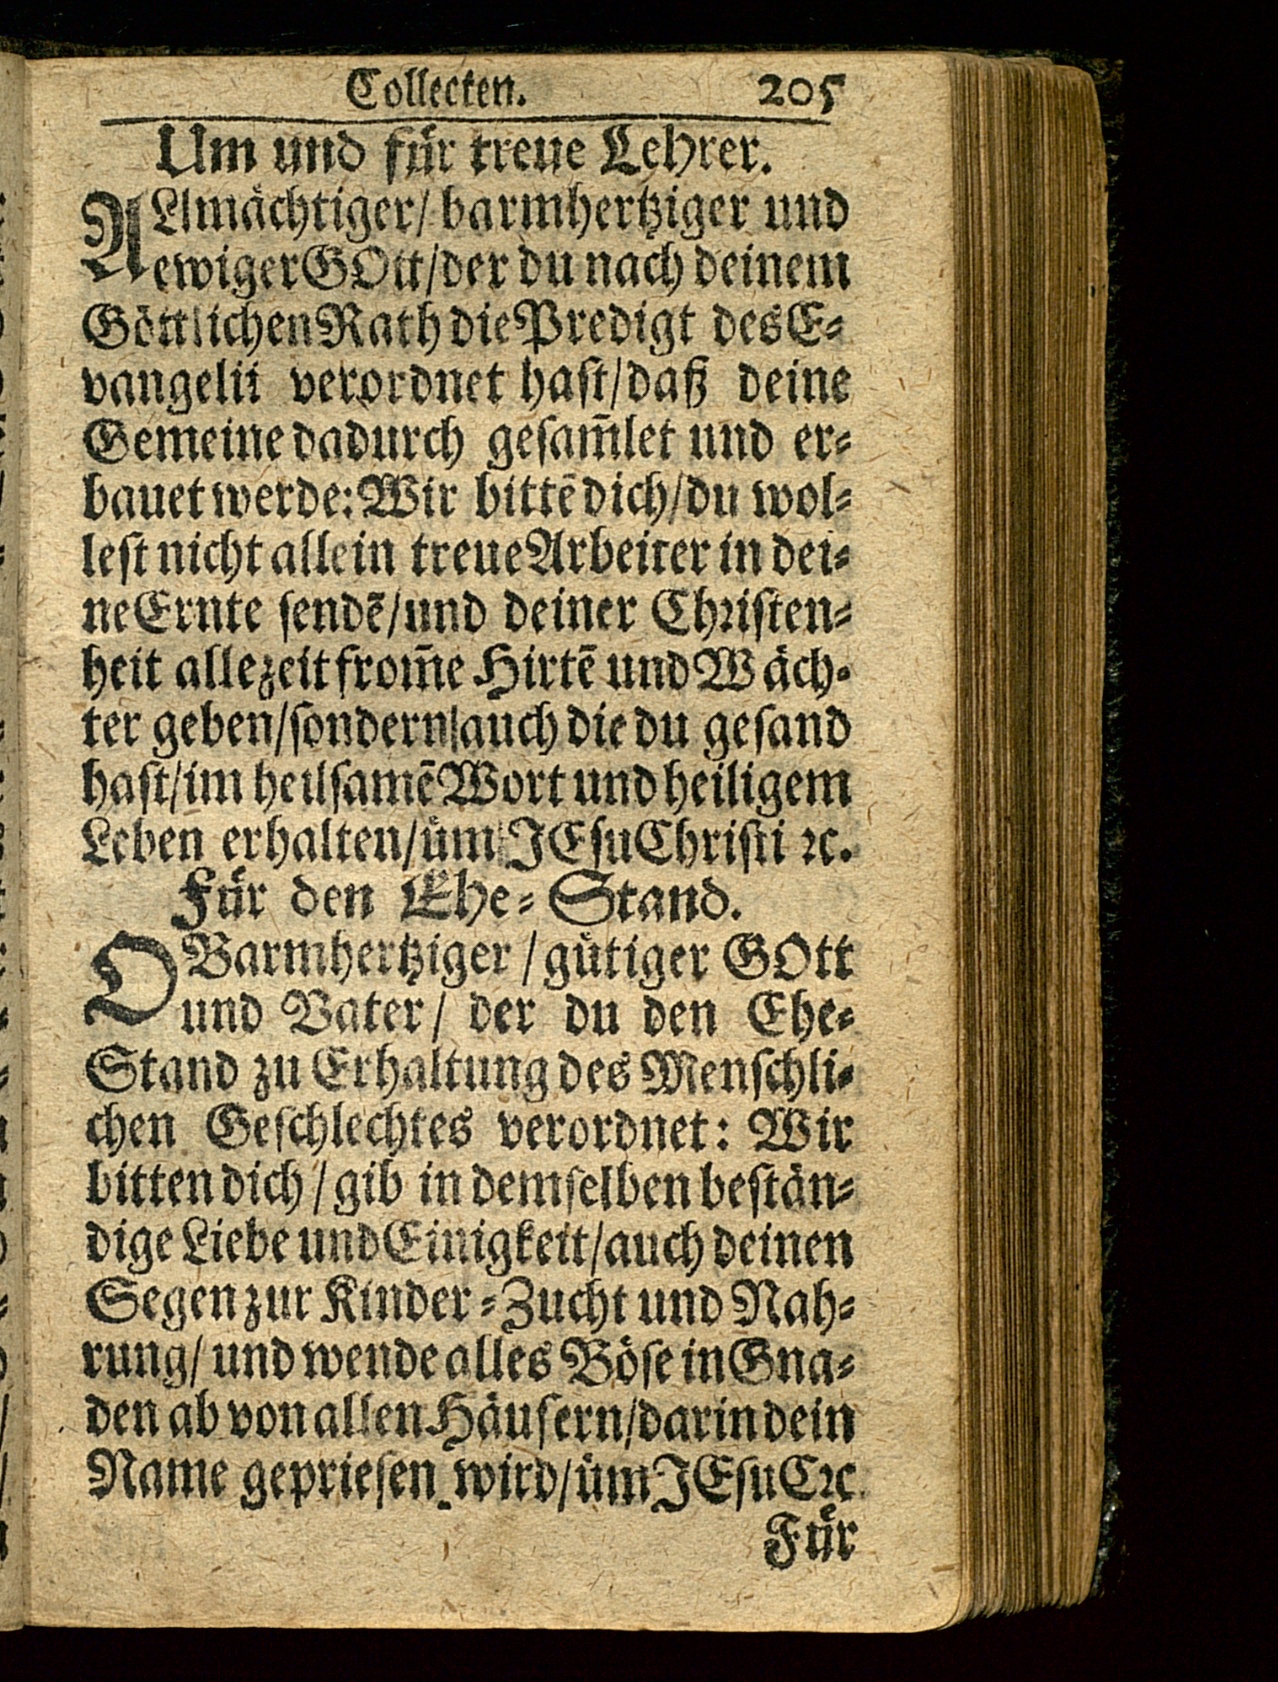 Collecten. 205
Um und für treue Lehrer.
ALlmächtiger/ barmhertziger und
ewiger GOtt/ der du nach deinem
Göttlichen Rath die Predigt des E-
vangelii verordnet hast/ daß deine
Gemeine dadurch gesam̃let und er-
bauet werde: Wir bittē dich/ du wol-
lest nicht allein treue Arbeiter in dei-
ne Ernte sendē/ und deiner Christen-
heit allezeit from̃e Hirtē und Wäch-
ter geben/ sondern auch die du gesand
hast/ im heilsamē Wort und heiligem
Leben erhalten/ üm JEsu Christi ꝛc.
Für den Ehe-Stand.
O Barmhertziger/ gütiger GOtt
und Vater/ der du den Ehe-
Stand zu Erhaltung des Menschli-
chen Geschlechtes verordnet: Wir
bitten dich/ gib in demselben bestän-
dige Liebe und Einigkeit/ auch deinen
Segen zur Kinder-Zucht und Nah-
rung/ und wende alles Böse in Gna-
den ab von allen Häusern/ darin dein
Name gepriesen wird/ üm JEsu C ꝛc
Für